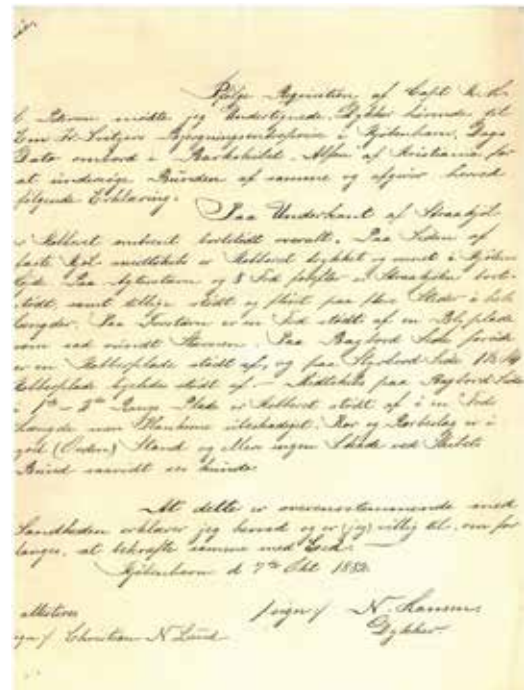 Ifølge Requisition af Capt
mødte jeg Undertegnede, Dykker hørende til
Em. Z. Svitzers Bjergningsentreprise i Kjøbenhavn, Dags
Dato ombord i Barkskibet "Alfen" af Kristiania for
at undersøge Bunden af samme og afgiver herved
følgende Erklæring.
Paa Underkant af Straakjøl
er Kobberet omtrent bortstødt overalt. Paa Siden af
faste Kjøl midtskibs er Kobberet
Paa Agterstavn og 8 Fod forefter er Straakjølen bort-
stødt, samt tillige stødt og flist paa flere Steder i hele
Længden. Paa Forstavn er en Fod stødt af en Blyplade
som sad rundt Stævnen. Paa Bagbord Side forude
er en Kobberplade stødt af, og paa Styrbord Side
Kobberplade ligeledes stødt af. — Midtskibs paa Bagbord Side
i 1ste - 2den Gang Plade er Kobberet stødt af i en Fods
Længde men Plankerne ubeskadiget. Ror og Rorbeslag er i
god (Orden) Stand og ellers ingen Skade ved Skibets
Bund saavidt sees kunde.
At dette er overensstemmende med
Sandheden erklærer jeg herved og er (jeg) villig til, om for-
langes, at bekræfte samme med Eed. —
Kjøbenhavn d. 7de Okt. 1882.
attesterer
sign / N. Hansen
Dykker.
sign / Christian N. Lund